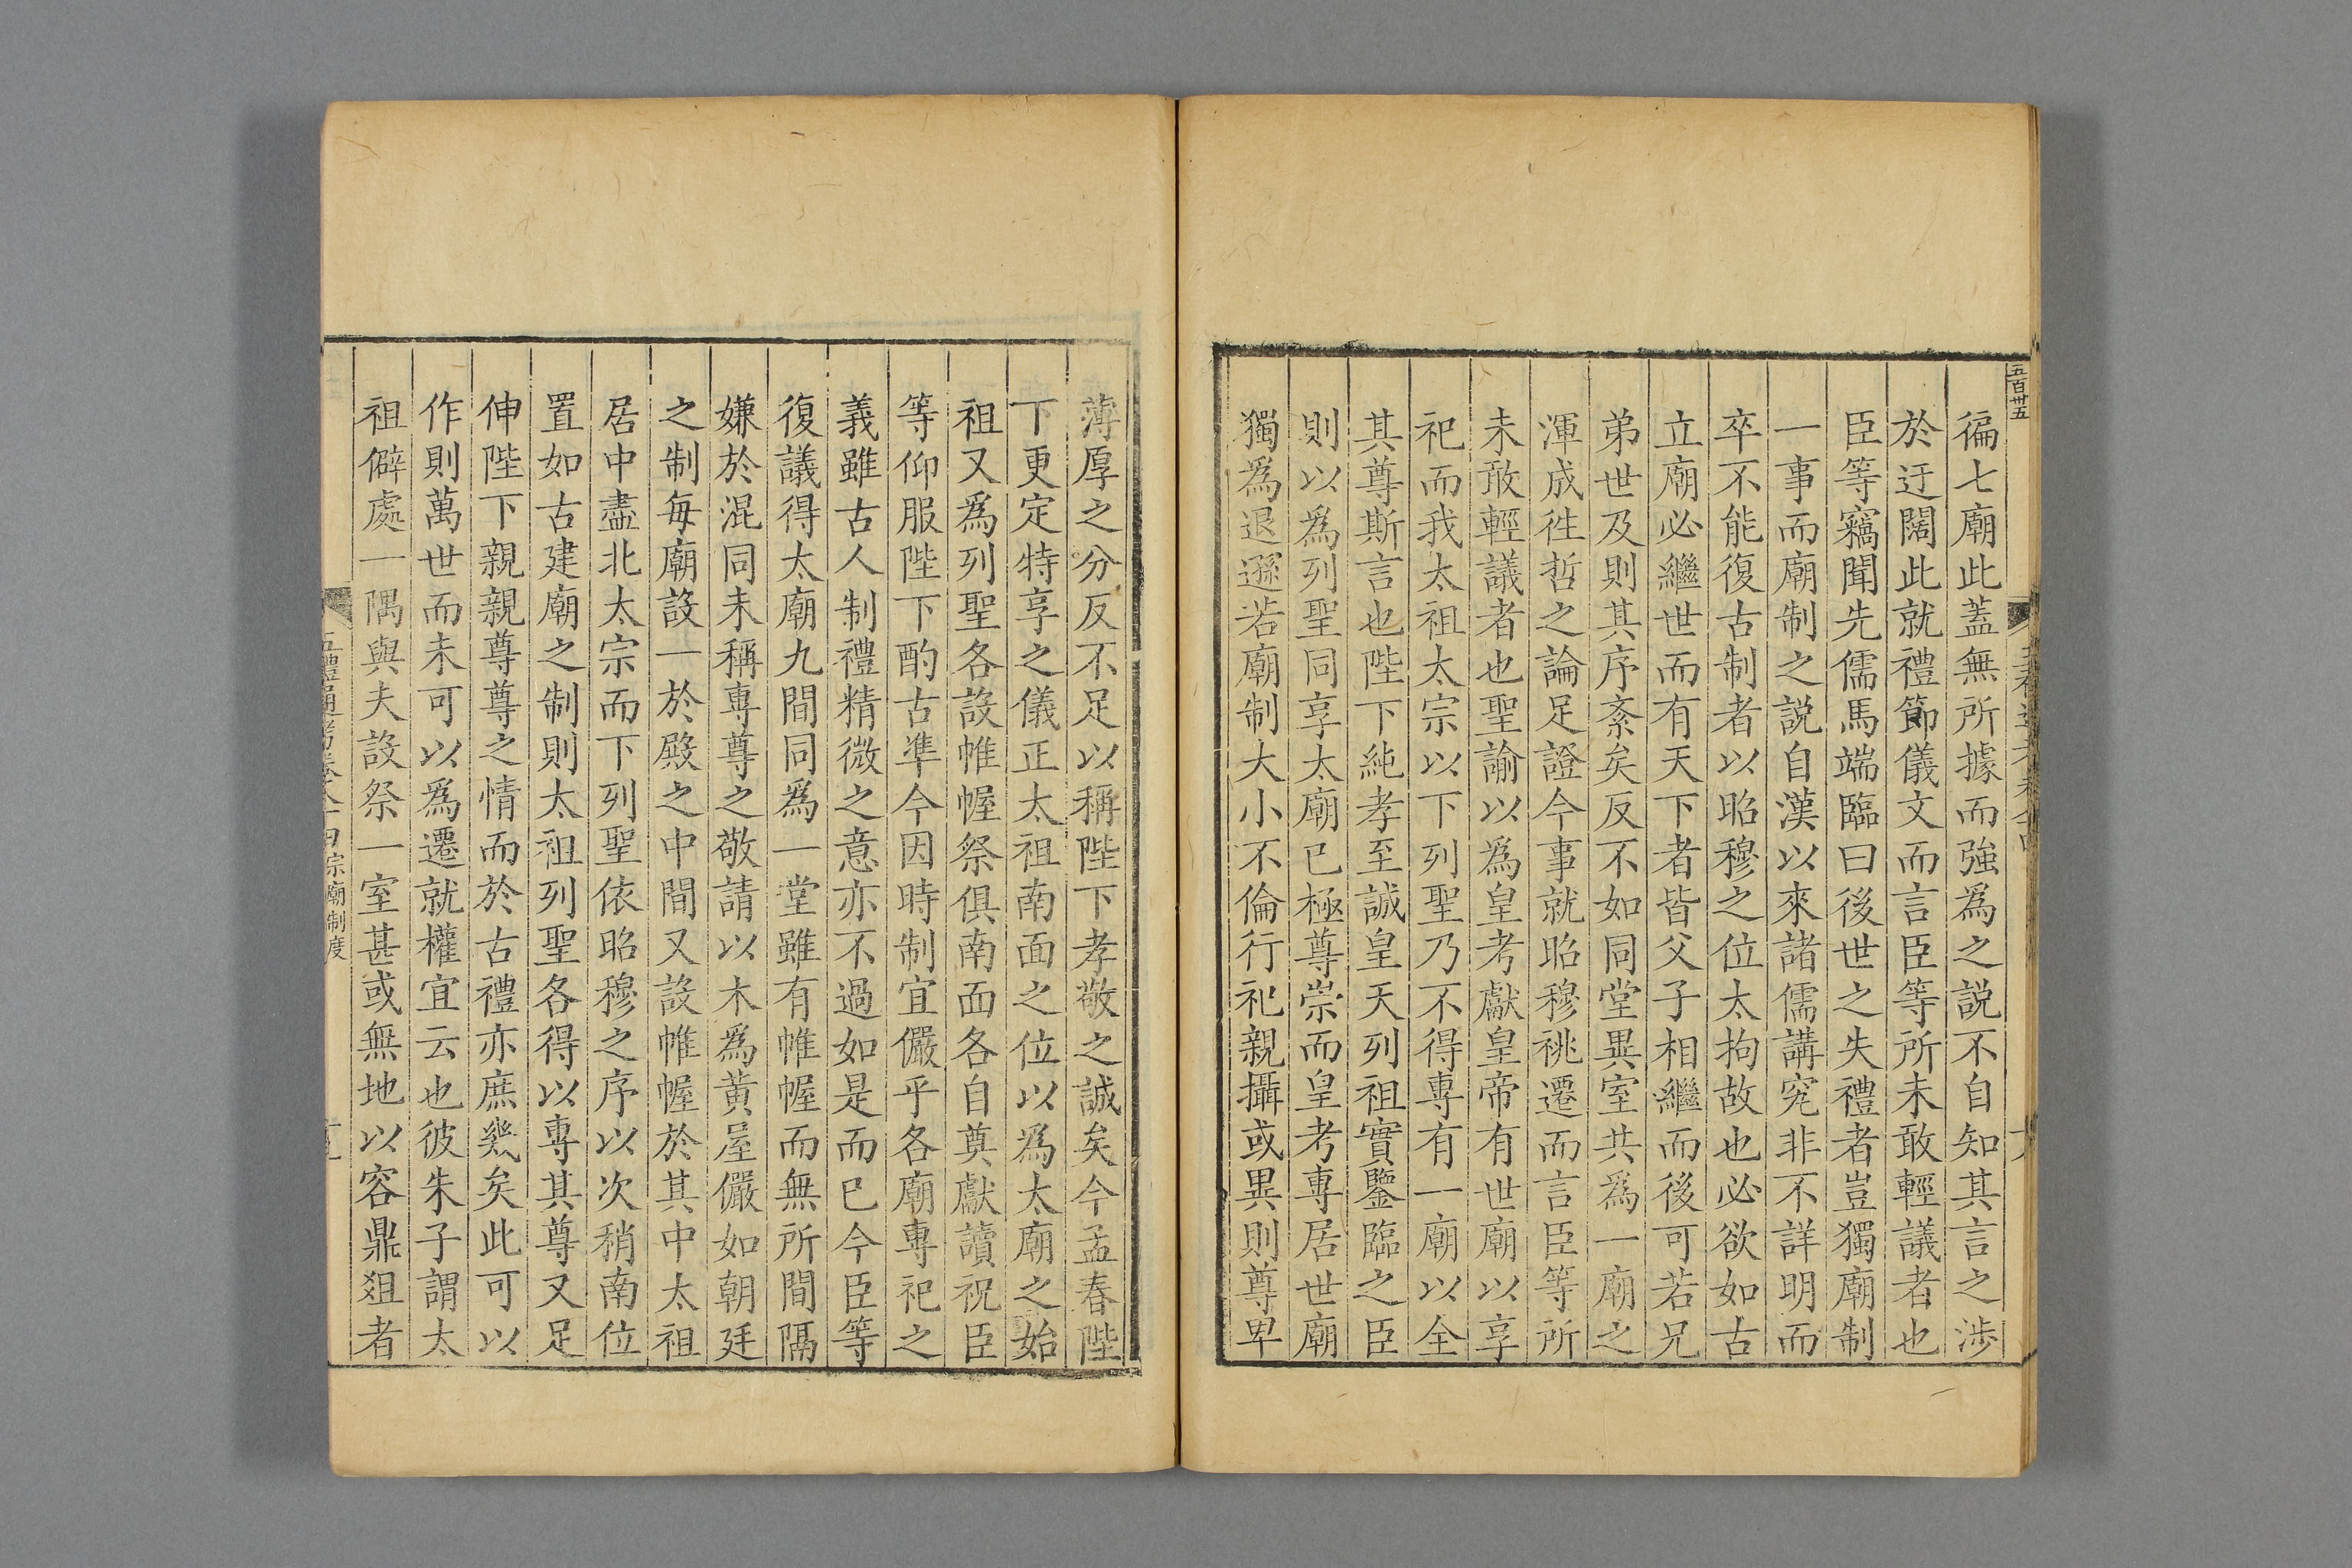 五百卅五
徧七廟此蓋無所據而強爲之説不自知其言之渉
於迂闊此就禮節儀文而言臣等所未敢輕議者也
臣等竊聞先儒馬端臨曰後世之失禮者豈獨廟制
一事而廟制之説自漢以來諸儒講究非不詳明而
卒不能復古制者以昭穆之位太拘故也必欲如古
立廟必繼世而有天下者皆父子相繼而後可若兄
弟世及則其序紊矣反不如同堂異室共爲一廟之
渾成徃哲之論足證今事就昭穆祧遷而言臣等所
未敢輕議者也聖諭以爲皇考獻皇帝有世廟以享
祀而我太祖太宗以下列聖乃不得專有一廟以全
其尊斯言也陛下純孝至誠皇天列祖實鑒臨之臣
則以爲列聖同享太廟已極尊崇而皇考專居世廟
獨爲退遜若廟制大小不倫行祀親攝或異則尊卑
薄厚之分反不足以稱陛下孝敬之誠矣今孟春陛
下更定特享之儀正太祖南面之位以爲太廟之始
祖又爲列聖各設帷幄祭俱南面各自奠獻讀祝臣
等仰服陛下酌古凖今因時制宜儼乎各廟專祀之
義雖古人制禮精微之意亦不過如是而已今臣等
復議得太廟九間同爲一堂雖有帷幄而無所間隔
嫌於混同未稱專尊之敬請以木爲黄屋儼如朝廷
之制每廟設一於殿之中間又設帷幄於其中太祖
居中盡北太宗而下列聖依昭穆之序以次稍南位
置如古建廟之制則太祖列聖各得以專其尊又足
伸陛下親親尊尊之情而於古禮亦庶幾矣此可以
作則萬世而未可以爲遷就權宜云也彼朱子謂太
祖僻處一隅與夫設祭一室甚或無地以容鼎俎者
五禮通考卷八十四宗廟制度